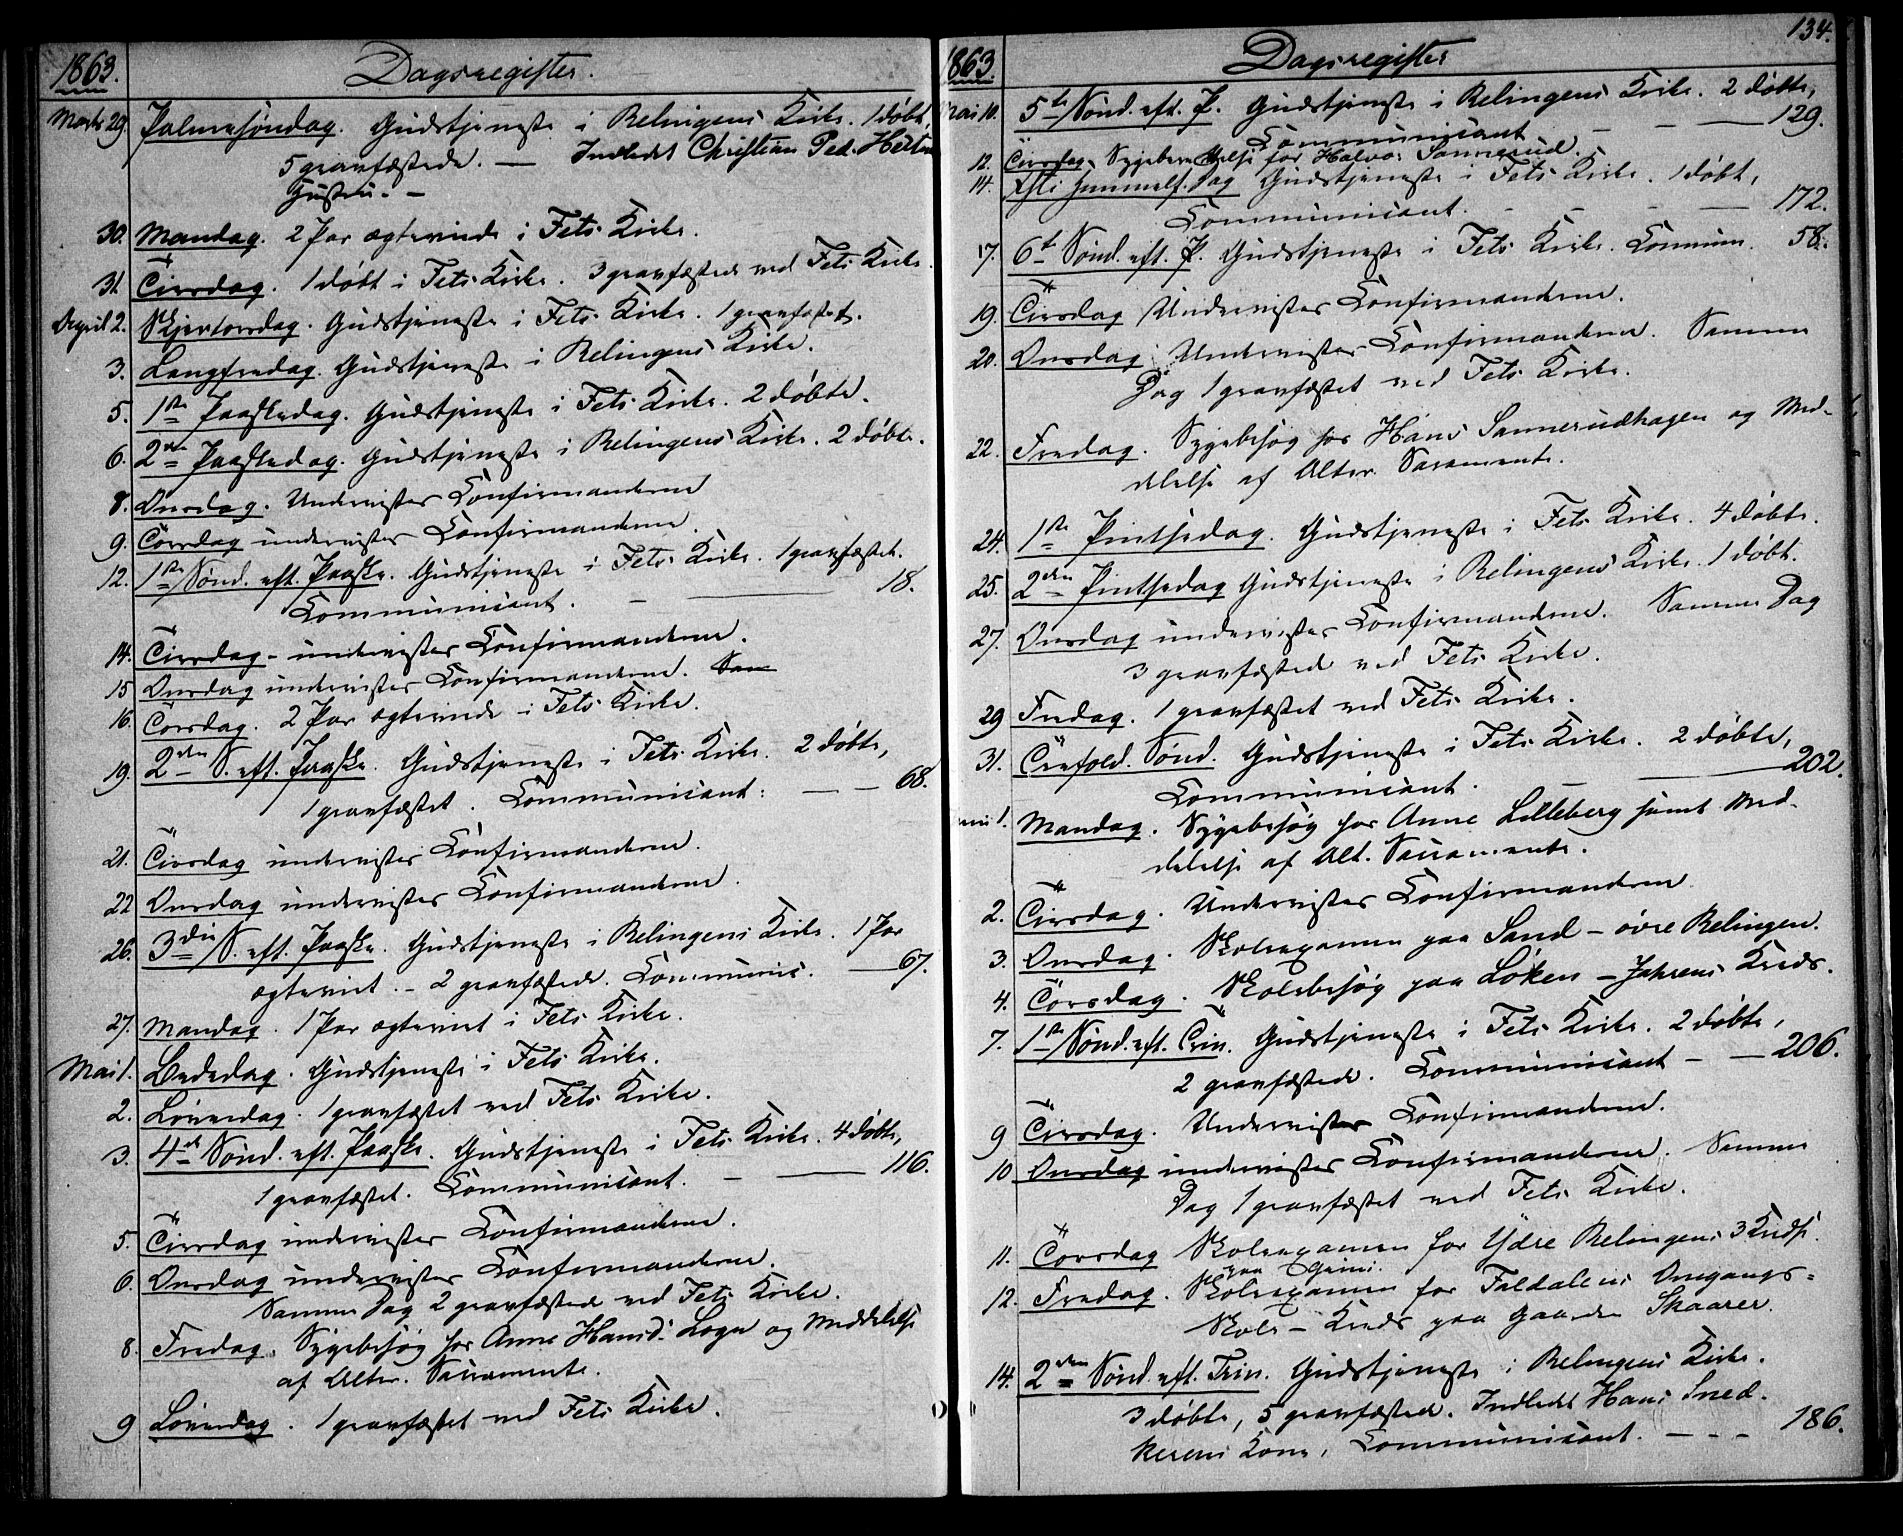 1863. Dagsregister.
Marts 29. Palmesøndag. Gudstjeneste i Relingens Kirke. 1 døbt,
5 gravfæstede. — Indledt Christian Ped.
Hustru. —
30. Mandag. 2 Par ægteviede i Fets Kirke.
31. Tirsdag. 1 døbt i Fets Kirke. 3 gravfæstede ved Fets Kirke.
April 2. Skjertorsdag. Gudstjeneste i Fets Kirke. 1 gravfæstet.
3. Langfredag. Gudstjeneste i Relingens Kirke.
5. 1ste Paaskedag. Gudstjeneste i Fets Kirke. 2 døbte.
6. 2den Paaskedag. Gudstjeneste i Relingens Kirke. 2 døbte.
8. Onsdag. Undervistes Confirmanderne
9. Torsdag undervistes Confirmanderne.
12. 1ste Sønd. eft. Paaske. Gudstjeneste i Fets Kirke. 1 gravfæstet.
Communicant. — — 18.
14. Tirsdag - undervistes Confirmanderne.
15 Onsdag undervistes Confirmanderne. Sam
16. Torsdag. 2 Par ægteviede i Fets Kirke.
19. 2den S. eft. Paaske. Gudstjeneste i Fets Kirke. 2 døbte,
1 gravfæstet. Communicant: — — 68.
21. Tirsdag undervistes Confirmanderne.
22 Onsdag undervistes Confirmanderne.
26. 3die S. eft. Paaske. Gudstjeneste i Relingens Kirke. 1 Par
ægteviet. - 2 gravfæstede. Communic. — 67.
27. Mandag. 1 Par ægteviet i Fets Kirke.
Mai 1. Bededag. Gudstjeneste i Fets Kirke.
2. Løverdag. 1 gravfæstet ved Fets Kirke.
3. 4de Sønd. eft. Paaske. Gudstjeneste i Fets Kirke. 4 døbte,
1 gravfæstet. Communicant. — — 116.
5. Tirsdag undervistes Confirmanderne.
6. Onsdag undervistes Confirmanderne.
Samme Dag 2 gravfæstede ved Fets Kirke.
8. Fredag. Sygebesøg hos Anne Hansd. og Meddelelse
af Alter. Sacramente.
9 Løverdag. 1 gravfæstet ved Fets Kirke.
134.
1863. Dagsregister
Mai 10. 5te Sønd. eft. P. Gudstjeneste i Relingens Kirke. 2 døbte,
Communicant — — 129.
12. Tirsdag. for Halvor Sannerud.
14. Chri Himmelf. Dag Gudstjeneste i Fets Kirke. 1 døbt,
Communicant. - - - — 172.
17. 6te Sønd. eft. P. Gudstjeneste i Fets Kirke. Commun. 58.
19. Tirsdag Undervistes Confirmanderne.
20. Onsdag Undervistes Confirmanderne. Samme
Dag 1 gravfæstet ved Fets Kirke.
22. Fredag. Sygebesøg hos Hans Sannerudhagen og Med-
delelse af Alter. Sacramente.
24. 1ste Pintsedag. Gudstjeneste i Fets Kirke. 4 døbte.
25. 2den Pintsedag Gudstjeneste i Relingens Kirke. 1 døbt.
27. Onsdag undervistes Confirmanderne. Samme Dag
3 gravfæstede ved Fets Kirke.
29 Fredag. 1 gravfæstet ved Fets Kirke.
31. Trefold. Sønd. Gudstjeneste i Fets Kirke. 2 døbte,
Communicant. — — 202.
uni 1. Mandag. Sygebesøg hos Anne Lilleberg samt Med-
delelse af Alt. Sacramente.
2. Tirsdag. Undervistes Confirmanderne.
3. Onsdag. Skolexamen paa Sand - øvre Relingen.
4. Torsdag. Skolebesøg paa Løken - Jahrens Kreds.
7. 1ste Sønd. eft. Trin. Gudstjeneste i Fets Kirke. 2 døbte,
2 gravfæstede. Communicant - — 206.
9 Tirsdag. Undervistes Confirmanderne.
10 Onsdag undervistes Confirmanderne. Samme
Dag 1 gravfæstet ved Fets Kirke.
11. Torsdag Skolexamen for Ydre Relingens 3
paa Grini.
12. Fredag. Skolexamen for Faldalens Omgangs-
Skole - Kreds paa Gaarden Skaarer.
14. 2den Sønd. eft. Trin. Gudstjeneste i Relingens Kirke.
3 døbte, 5 gravfæstede. Indledt Hans Sned-
kerens Kone, Communicant. — - - 186.